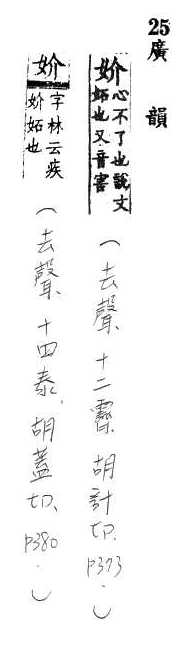 25廣韻
妎心不了也說文
妬也又音害
(去聲、十二霽、胡計切、p373.)
妎字林云疾
妎妬也
(去聲、十四泰、胡蓋切、p380.)